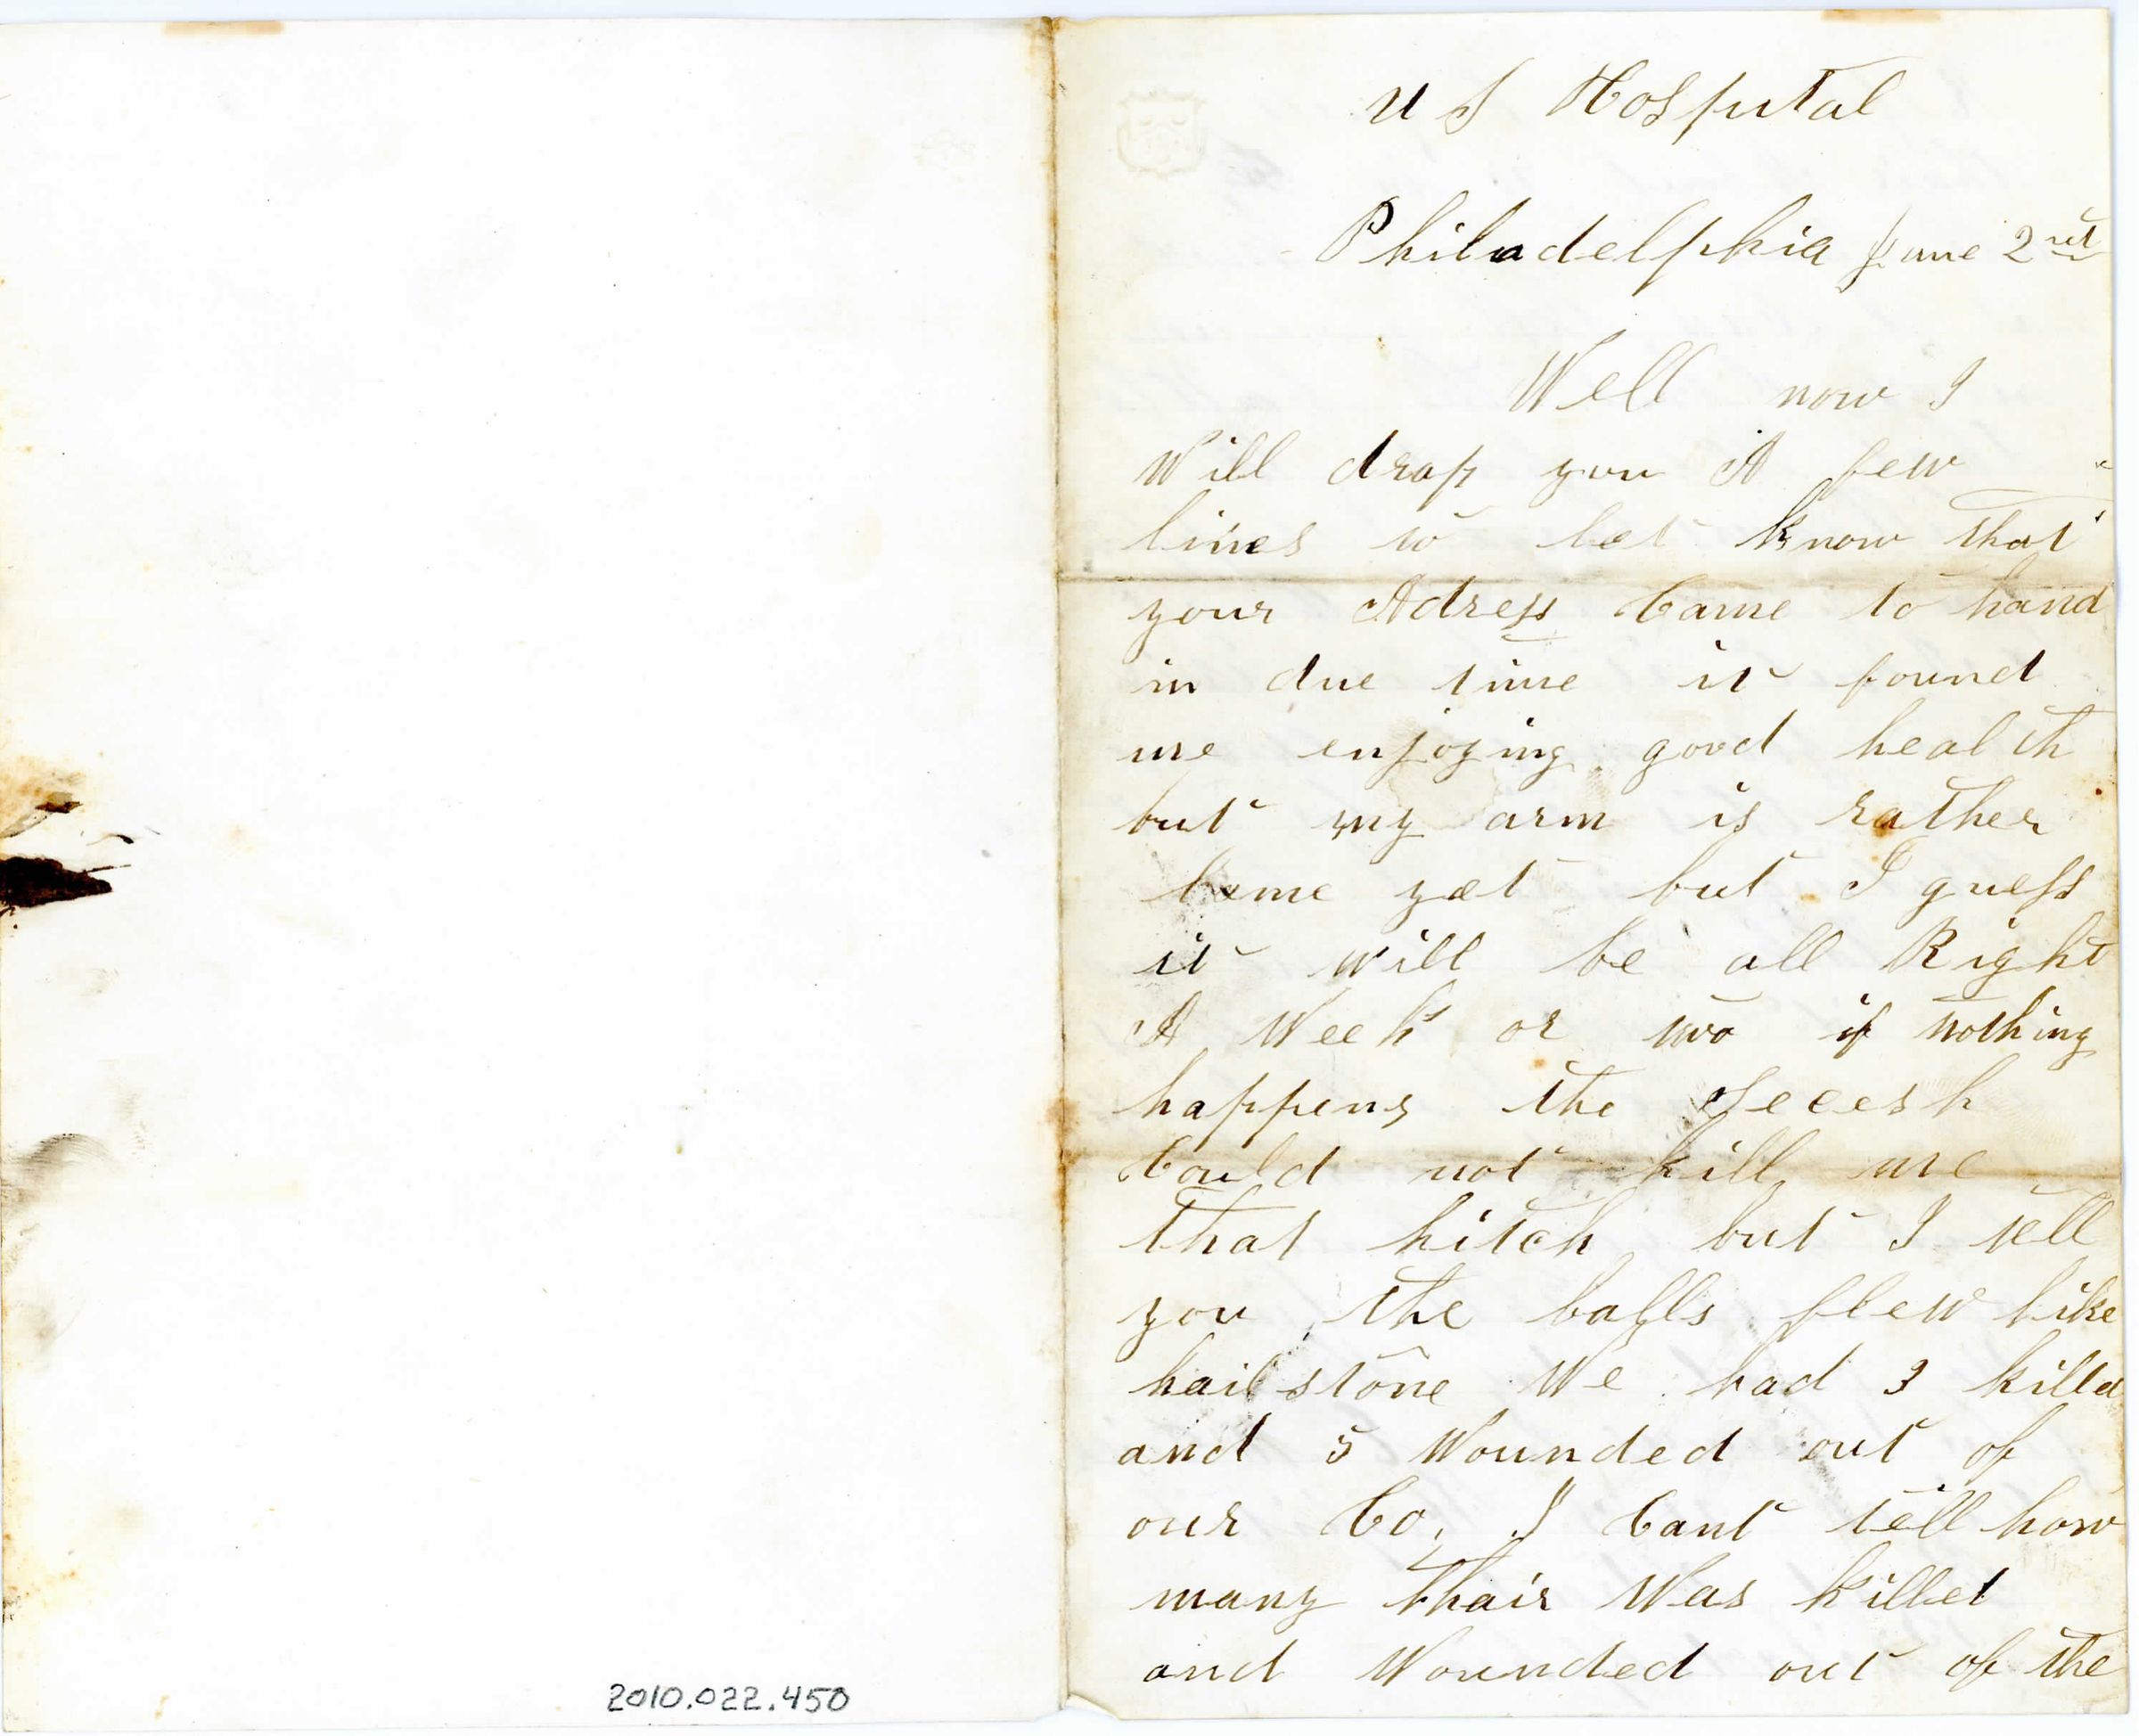 U S Hospital
Philadelphia June 2nd
Well now I
Will drop you A few
lines to let know that
your Adress Came to hand
in due time it found
me enjoying good health
but my arm is rather
lame yet but I guess
it will be all Right
A Week or two if nothing
happens the Secesh
Could not kill me
that hitch but I tell
you the balls flew like
hail stone We had 3 killd
and 5 Wounded out of
our Co, I Cant tell how
many thair Was killed
and Wounded out of the
2010.022.450